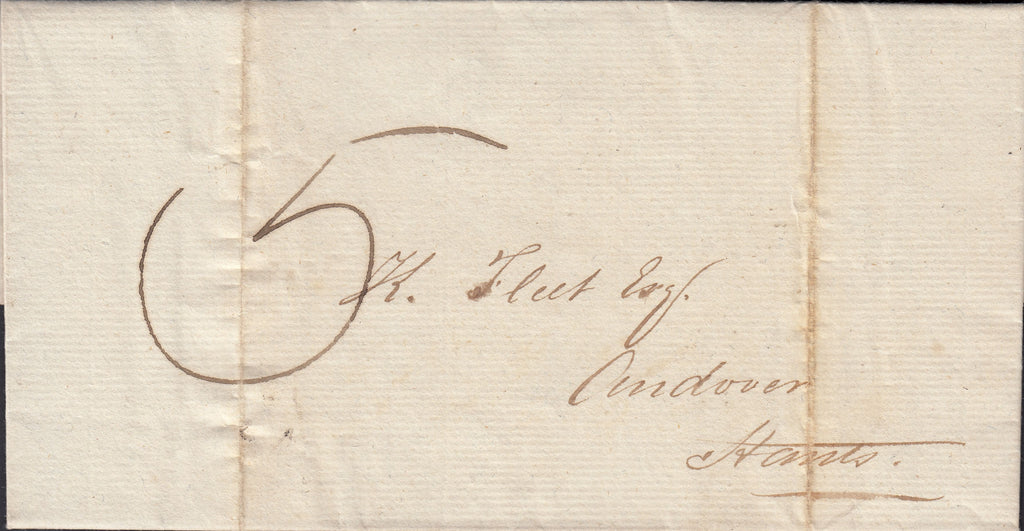 5
K. Fleet Esq.
Andover
Hants.